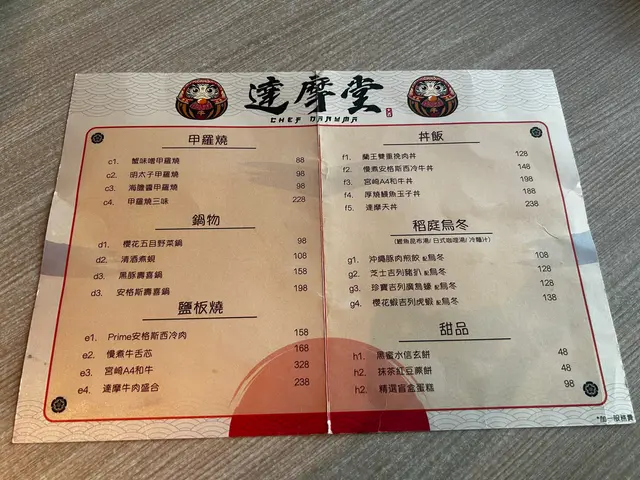 達摩堂
CHEF DARUMA
甲羅燒
c1. 蟹味噌甲羅燒 88
c2. 明太子甲羅燒 98
c3. 海膽醬甲羅燒 98
c4. 甲羅燒三味 228
鍋物
d1. 櫻花五目野菜鍋 98
d2. 清酒煮蜆 108
d3. 黑豚壽喜鍋 158
d3. 安格斯壽喜鍋 198
鹽板燒
e1. Prime安格斯西冷肉 158
e2. 慢煮牛舌芯 168
e3. 宮崎A4和牛 328
e4. 達摩牛肉盛合 238
丼飯
f1. 蘭王雙重挽肉丼 128
f2. 慢煮安格斯西冷牛丼 148
f3. 宮崎A4和牛丼 198
f4. 厚燒鰻魚玉子丼 188
f5. 達摩天丼 238
稻庭烏冬
(鰹魚昆布湯/日式咖哩湯/冷麵汁)
g1. 沖繩豚肉煎餃 配烏冬 108
g2. 芝士吉列豬扒 配烏冬 128
g3. 珍寶吉列廣島蠔 配烏冬 128
g4. 櫻花蝦吉列虎蝦 配烏冬 138
甜品
h1. 黑蜜水信玄餅 48
h2. 抹茶紅豆蕨餅 48
h2. 精選盲盒蛋糕 98
*加一服務費